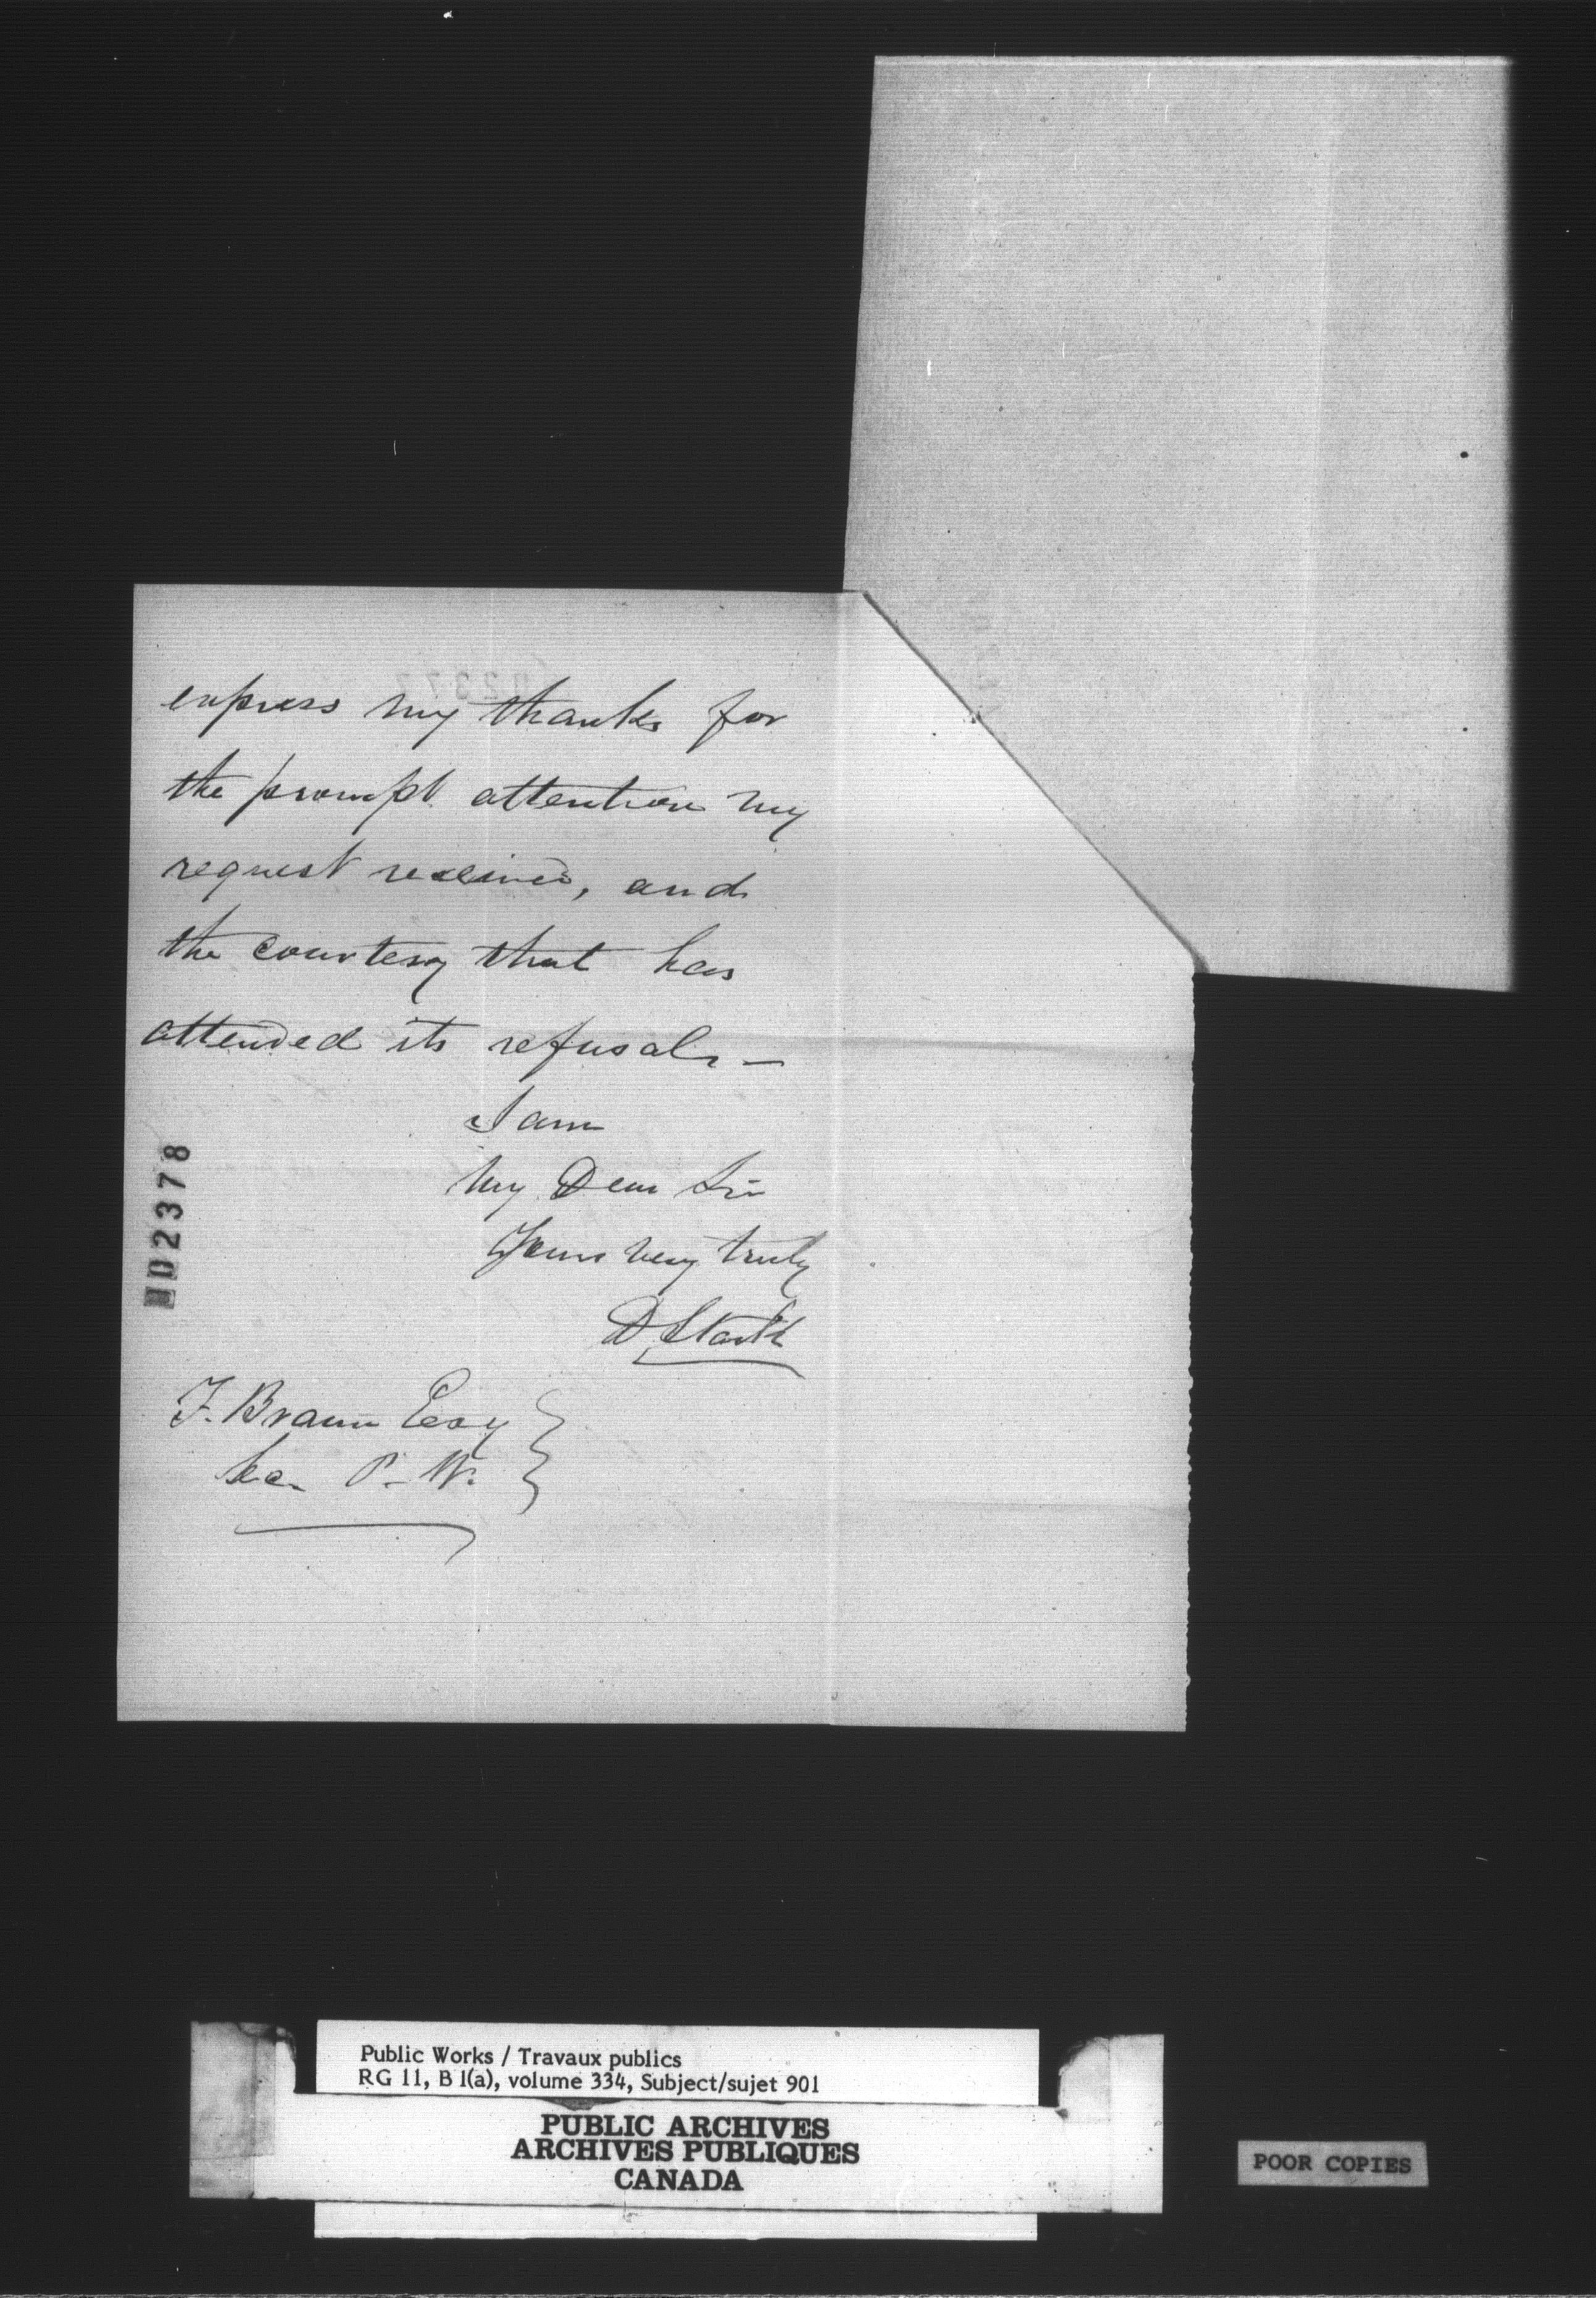 express my thanks for
the prompt attention my
request received, and
the courtesy that has
attended its refusal. —
I am
My Dear Sir
Yours very truly
D Stark
F. Braun Esq
Sec. P. W.
2378
Public Works / Travaux publics
RG 11, B 1(a), volume 334, Subject/sujet 901
PUBLIC ARCHIVES
ARCHIVES PUBLIQUES
CANADA
POOR COPIES